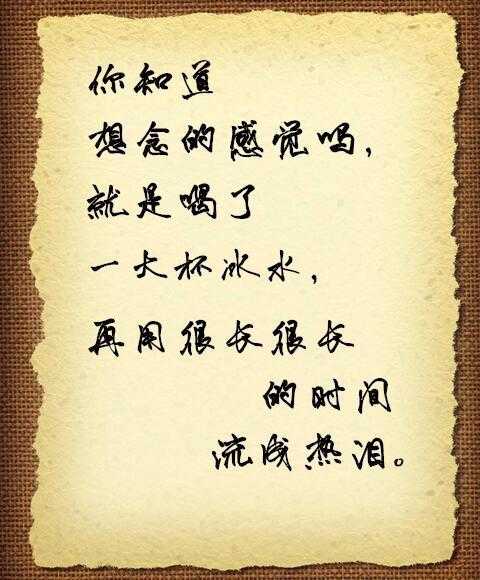 你知道
想念的感觉吗，
就是喝了
一大杯冰水，
再用很长很长
的时间
流成热泪。